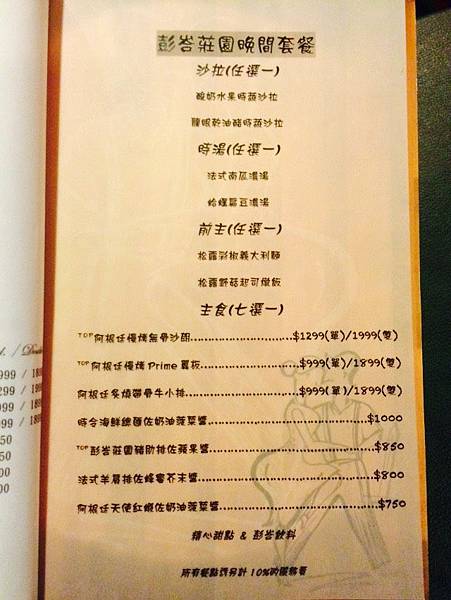 彭峇莊園晚間套餐
沙拉(任選一)
酸奶水果時蔬沙拉
鹽蝦乾油醋時蔬沙拉
時湯(任選一)
法式南瓜濃湯
蛤蠣扁豆濃湯
前主(任選一)
松露彩椒義大利麵
松露野菇起司燉飯
主食(七選一)
TOP阿根廷慢烤無骨沙朗..........$1299(單)/1999(雙)
TOP阿根廷慢烤Prime翼板..........$999(單)/1899(雙)
阿根廷炙燒帶骨牛小排..........$999(單)/1899(雙)
時令海鮮總匯佐奶油菠菜醬..........$1000
TOP彭峇莊園豬肋排佐蘋果醬..........$850
法式羊肩排佐蜂蜜芥末醬..........$800
阿根廷天使紅蝦佐奶油菠菜醬..........$750
精心甜點 & 彭峇飲料
所有餐點皆另計10%的服務費